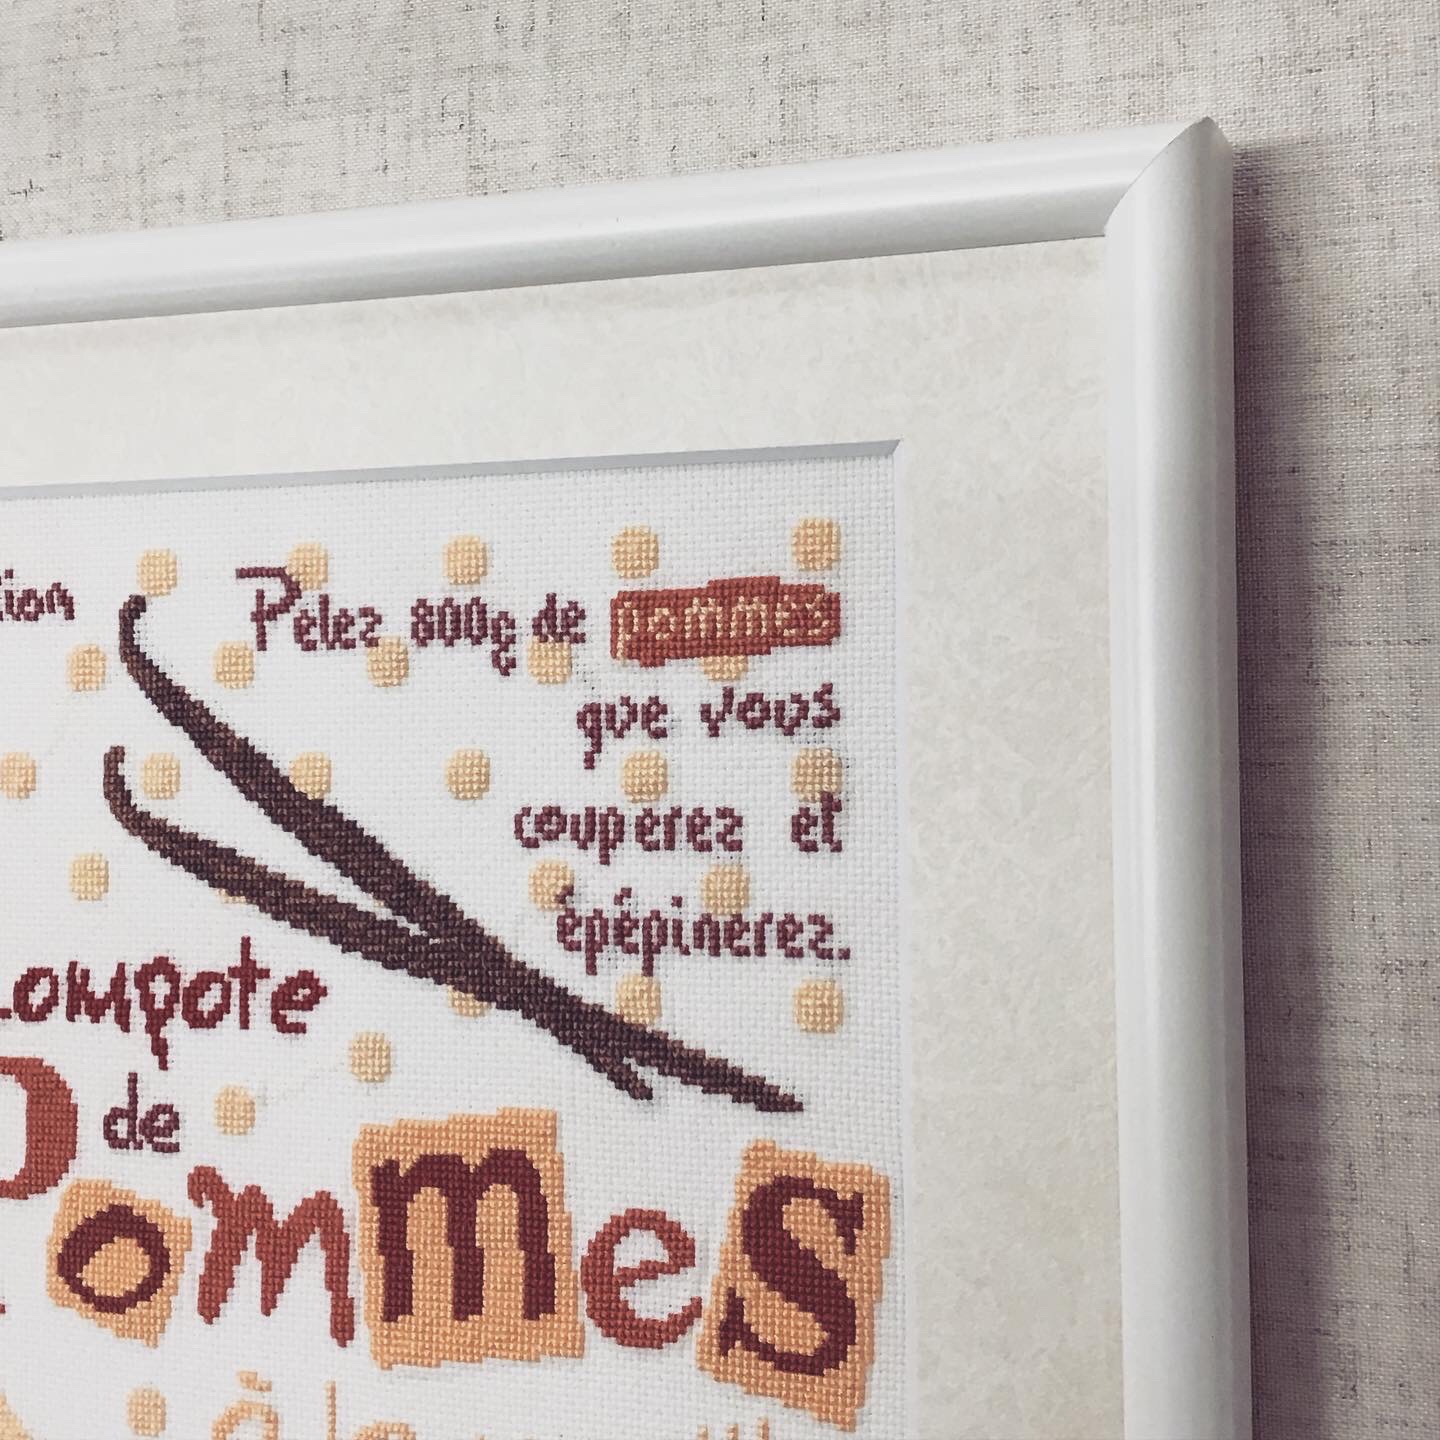 Pélez 800g de pommes
que vous
couperez et
épépinerez.
compote
de
Pommes
à la